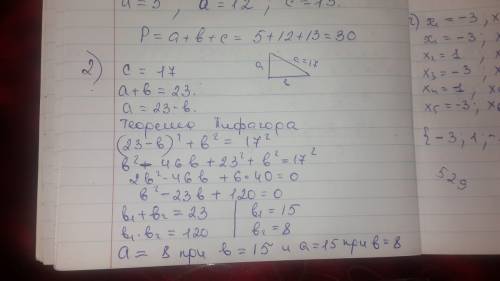 a = 5 , a = 12 ; c = 13.
P = a+b+c = 5+12+13 = 30
2)
c = 17
a+b = 23.
a = 23-b.
a
c=17
b
Теорема Пифагора
(23-b)² + b² = 17²
b² - 46b + 23² + b² = 17²
2b² - 46b + 6·40 = 0
b² - 23b + 120 = 0
b₁ + b₂ = 23 | b₁ = 15
b₁ · b₂ = 120 | b₂ = 8
a = 8 при b = 15 и a = 15 при b = 8
x₁ = -3, x
x₁ = -3,
x₂ = 1
x₃ = -3
x₄ = 1, x
x₅ = -3; x
{-3, 1, -
529